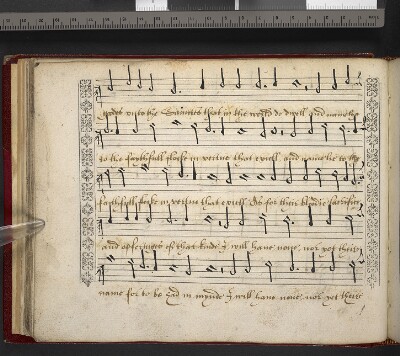 unto the Sainctes that in the world do dwell and namelie
to the faythfull flocke in vertue that excell, and namelie to the
faithfull flocke in vertue that excell As for their bloudie sacrifice
and offeringes of that kinde I will haue none, nor yet their
name for to be had in mynde I will haue none nor yet their